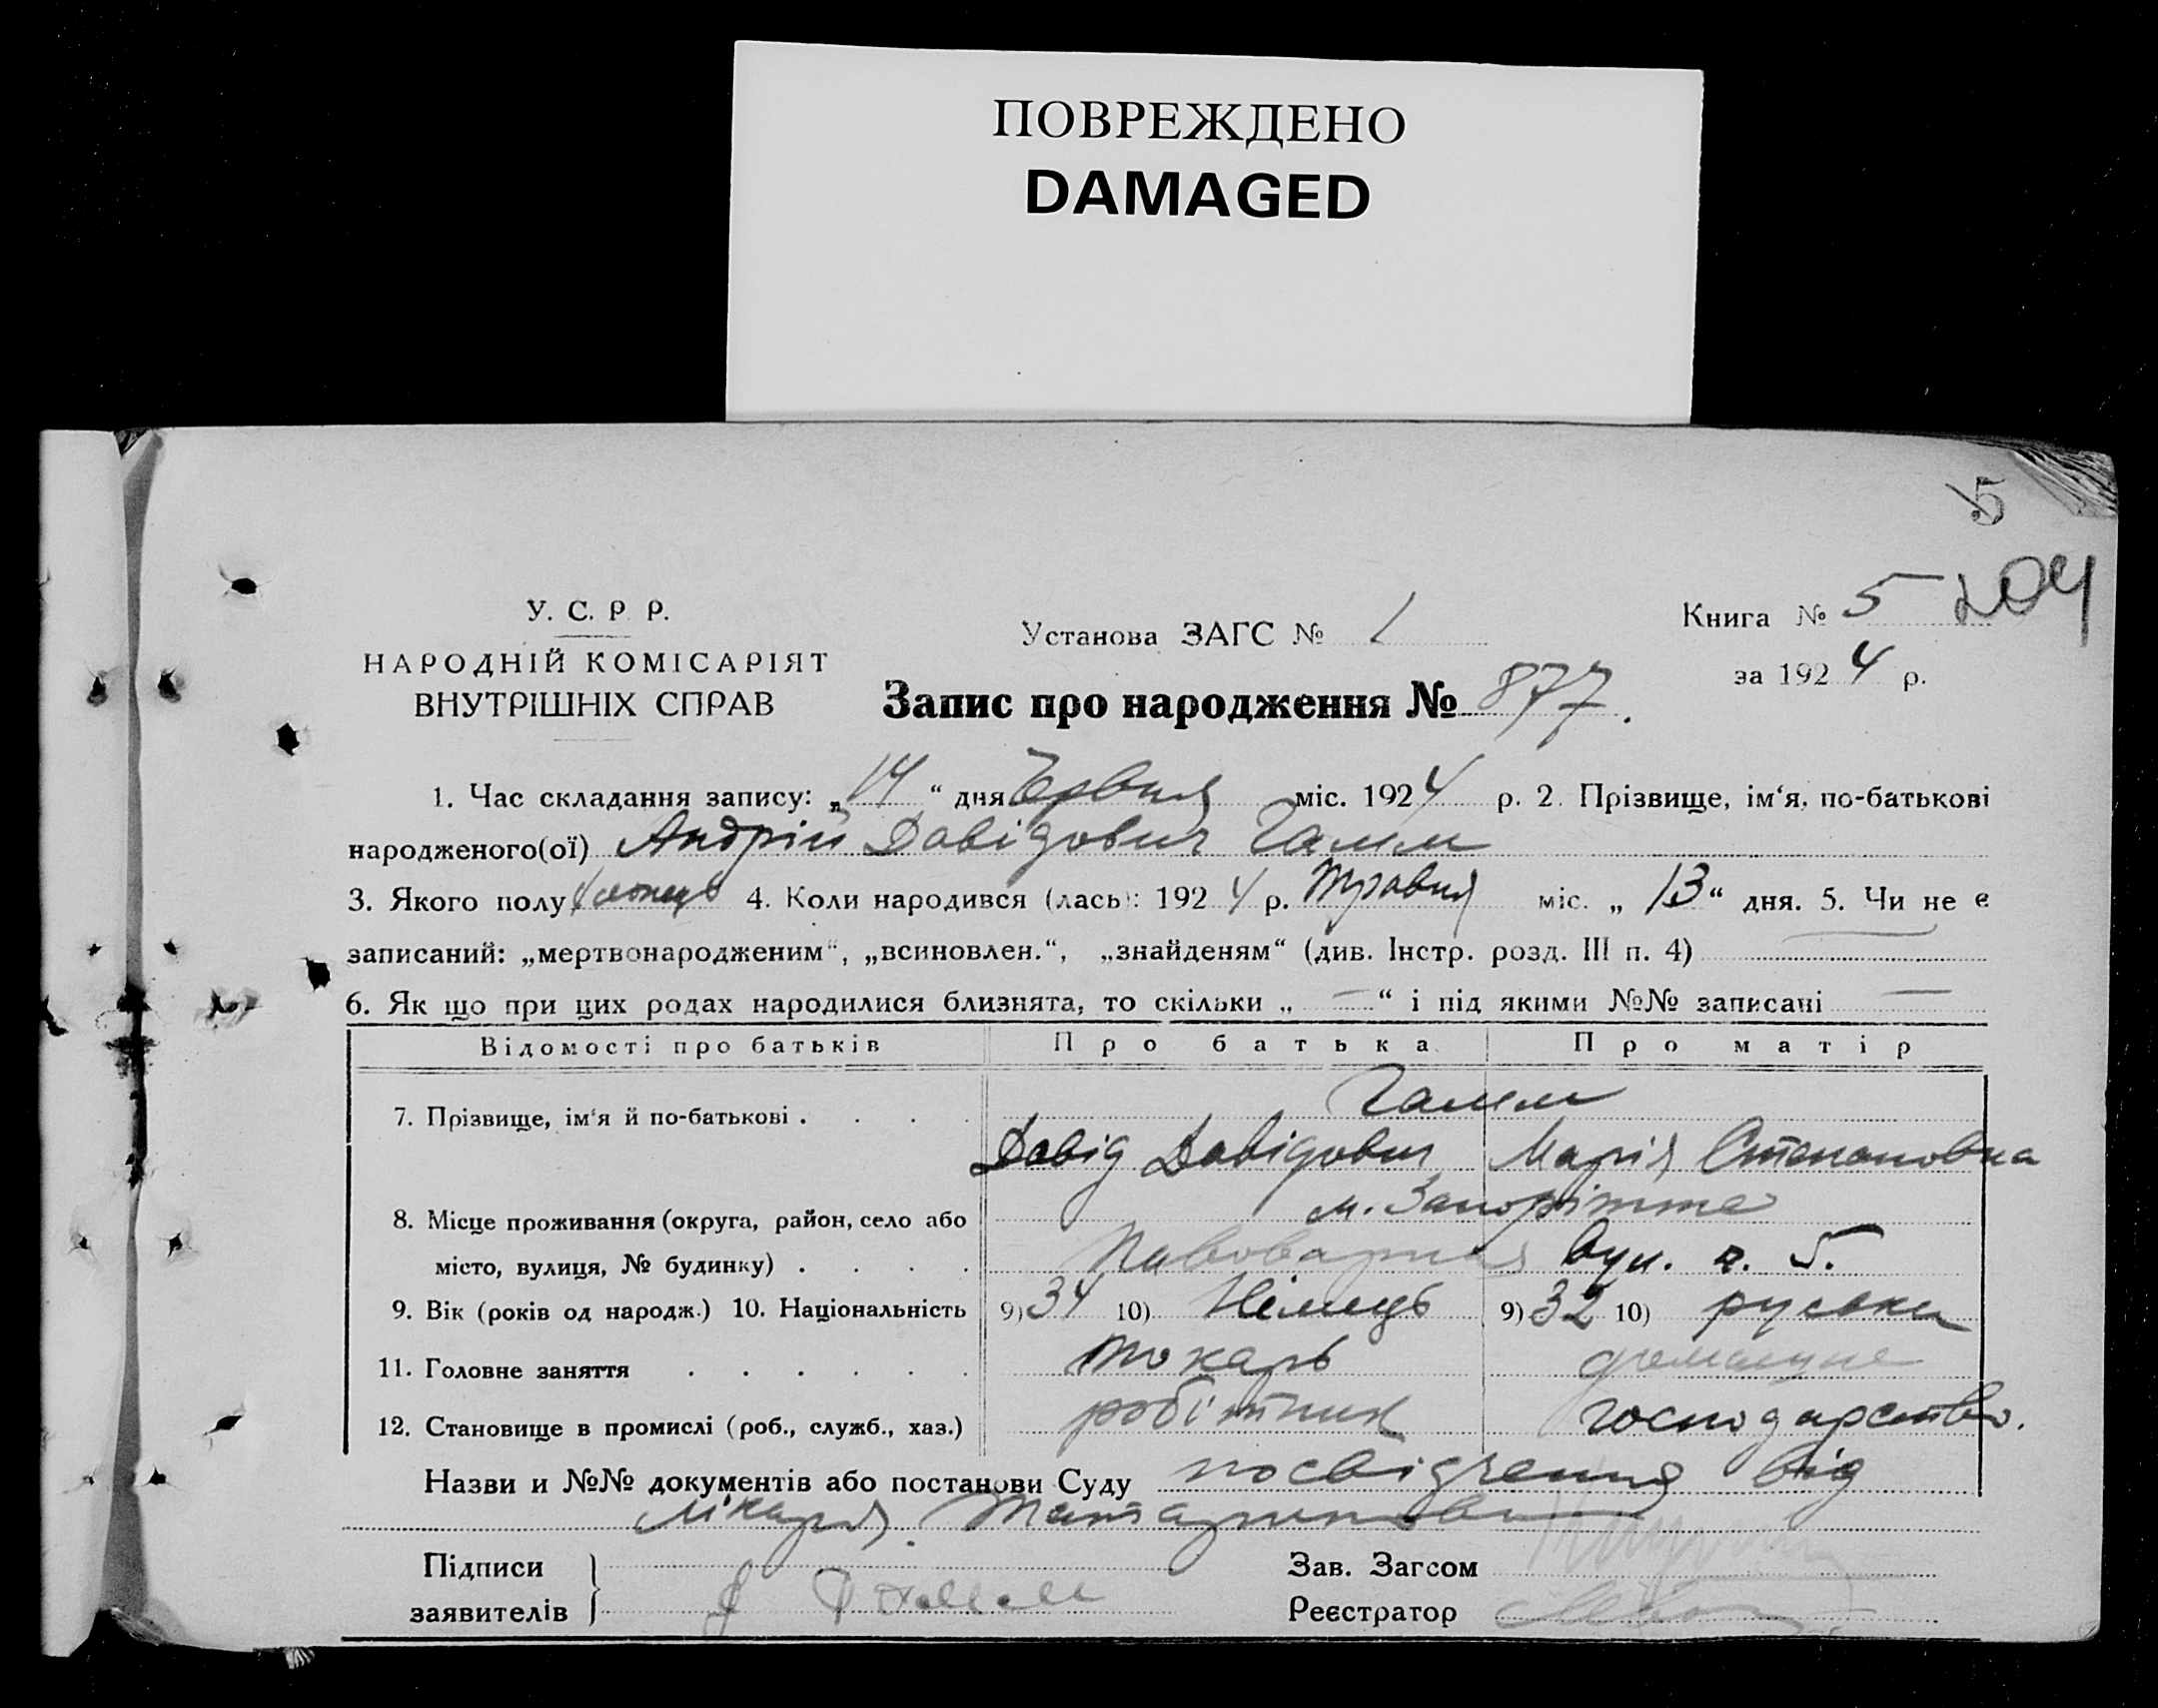 ПОВРЕЖДЕНО
DAMAGED
5
204
У. С. Р. Р.
НАРОДНІЙ КОМІСАРІЯТ
ВНУТРІШНІХ СПРАВ
Установа ЗАГС № 1
Книга № 5
за 1924 р.
Запис про народження № 877.
1. Час складання запису: „14“ дня Червня міс. 1924 р. 2. Прізвище, ім‘я, по-батькові
народженого(ої) Андрій Давідович Гамм
3. Якого полу хлопець 4. Коли народився (лась): 1924 р. Травня міс. „13“ дня. 5. Чи не є
записаний: „мертвонародженим“, „всиновлен.“, „знайденям“ (див. Інстр. розд. III п. 4)
6. Як що при цих родах народилися близнята, то скільки „—“ і під якими №№ записані —
Відомості про батьків Про батька Про матір
7. Прізвище, ім‘я й по-батькові . . . . Гамм
Давід Давідович Марія Степановна
8. Місце проживання (округа, район, село або м. Запоріжже
місто, вулиця, № будинку) . . . . Пивоварная вул. 5.
9. Вік (років од народж.) 10. Національність 9) 34 10) Німець 9) 32 10) руська
11. Головне заняття . . . . . . токарь домашне
12. Становище в промислі (роб., служб., хаз.) робітник господарство.
Назви и №№ документів або постанови Суду посвідчення від
лікаря.
Підписи
заявителів
Гамм
Зав. Загсом
Реєстратор